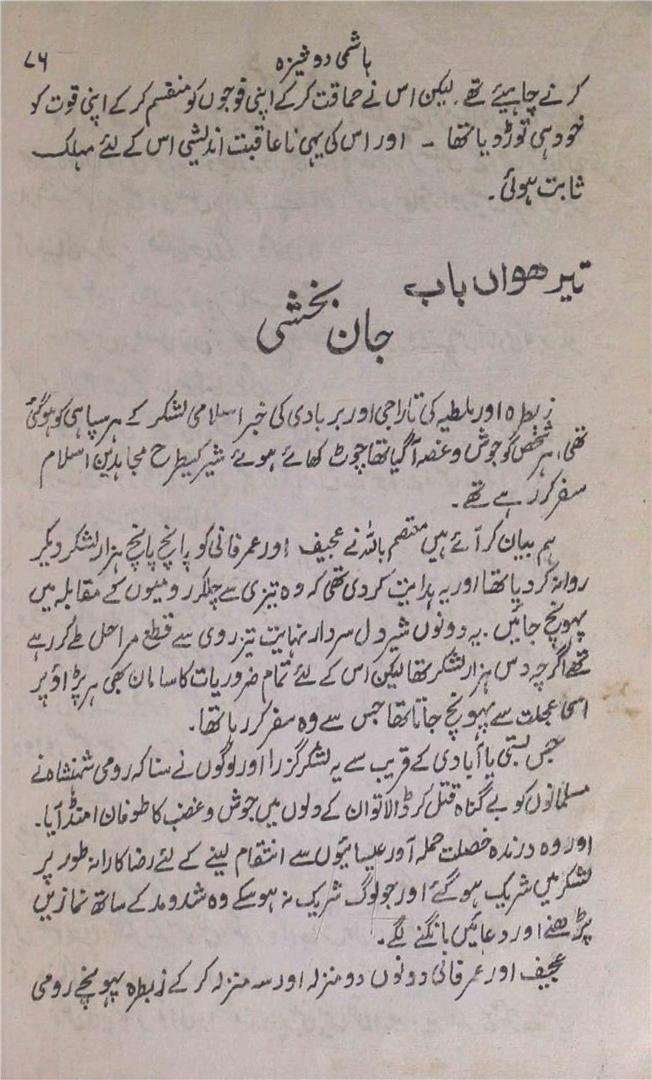 ہاشمی دوشیزہ ۷۶
کرنے چاہیئے تھے۔ لیکن اس نے حماقت کرکے اپنی فوجوں کو منقسم کرکے اپنی قوت کو
خود ہی توڑ دیا تھا ۔ اور اس کی یہی ناعاقبت اندیشی اس کے لئے مہلک
ثابت ہوئی۔
تیرھواں باب
جان بخشی
زبطرہ اور ملطیہ کی تاراجی اور بربادی کی خبر اسلامی لشکر کے ہر سپاہی کو ہوگئی
تھی، ہر شخص کو جوش و غصہ آگیا تھا چوٹ کھائے ہوئے شیر کیطرح مجاہدین اسلام
سفر کر رہے تھے۔
ہم بیان کر آئے ہیں معتصم باللہ نے عجیف اور عمر فانی کو پانچ پانچ ہزار لشکر دیکر
روانہ کردیا تھا اور یہ ہدایت کردی تھی کہ وہ تیزی سے چلکر رومیوں کے مقابلہ میں
پہونچ جائیں۔ یہ دونوں شیر دل سردار نہایت تیز روی سے قطع مراحل طے کر رہے
تھے اگرچہ دس ہزار لشکر تھا لیکن اس کے لئے تمام ضروریات کا سامان بھی ہر پڑاؤ پر
اسی عجلت سے پہونچ جاتا تھا جس سے وہ سفر کر رہا تھا۔
جس بستی یا آبادی کے قریب سے یہ لشکر گزرا اور لوگوں نے سنا کہ رومی شہنشاہ نے
مسلمانوں کو بے گناہ قتل کر ڈالا تو ان کے دلوں میں جوش و غضب کا طوفان امنڈ آیا۔
اور وہ درندہ خصلت حملہ آور عیسائیوں سے انتقام لینے کے لئے رضا کارانہ طور پر
لشکر میں شریک ہوگئے اور جو لوگ شریک نہ ہوسکے وہ شد و مد کے ساتھ نمازیں
پڑھنے اور دعائیں مانگنے لگے۔
عجیف اور عمر فانی دونوں دو منزلہ اور سہ منزلہ کرکے زبطرہ پہونچے رومی